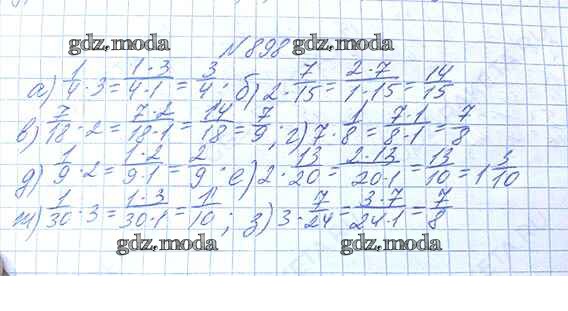 gdz.moda gdz.moda
№898
а) 1/4 · 3 = 1·3/4·1 = 3/4; б) 2 · 7/15 = 2·7/1·15 = 14/15
в) 7/18 · 2 = 7·2/18·1 = 14/18 = 7/9; г) 7 · 1/8 = 7·1/8·1 = 7/8
д) 1/9 · 2 = 1·2/9·1 = 2/9; е) 2 · 13/20 = 2·13/20·1 = 13/10 = 1 3/10
ж) 1/30 · 3 = 1·3/30·1 = 1/10; з) 3 · 7/24 = 3·7/24·1 = 7/8
gdz.moda gdz.moda